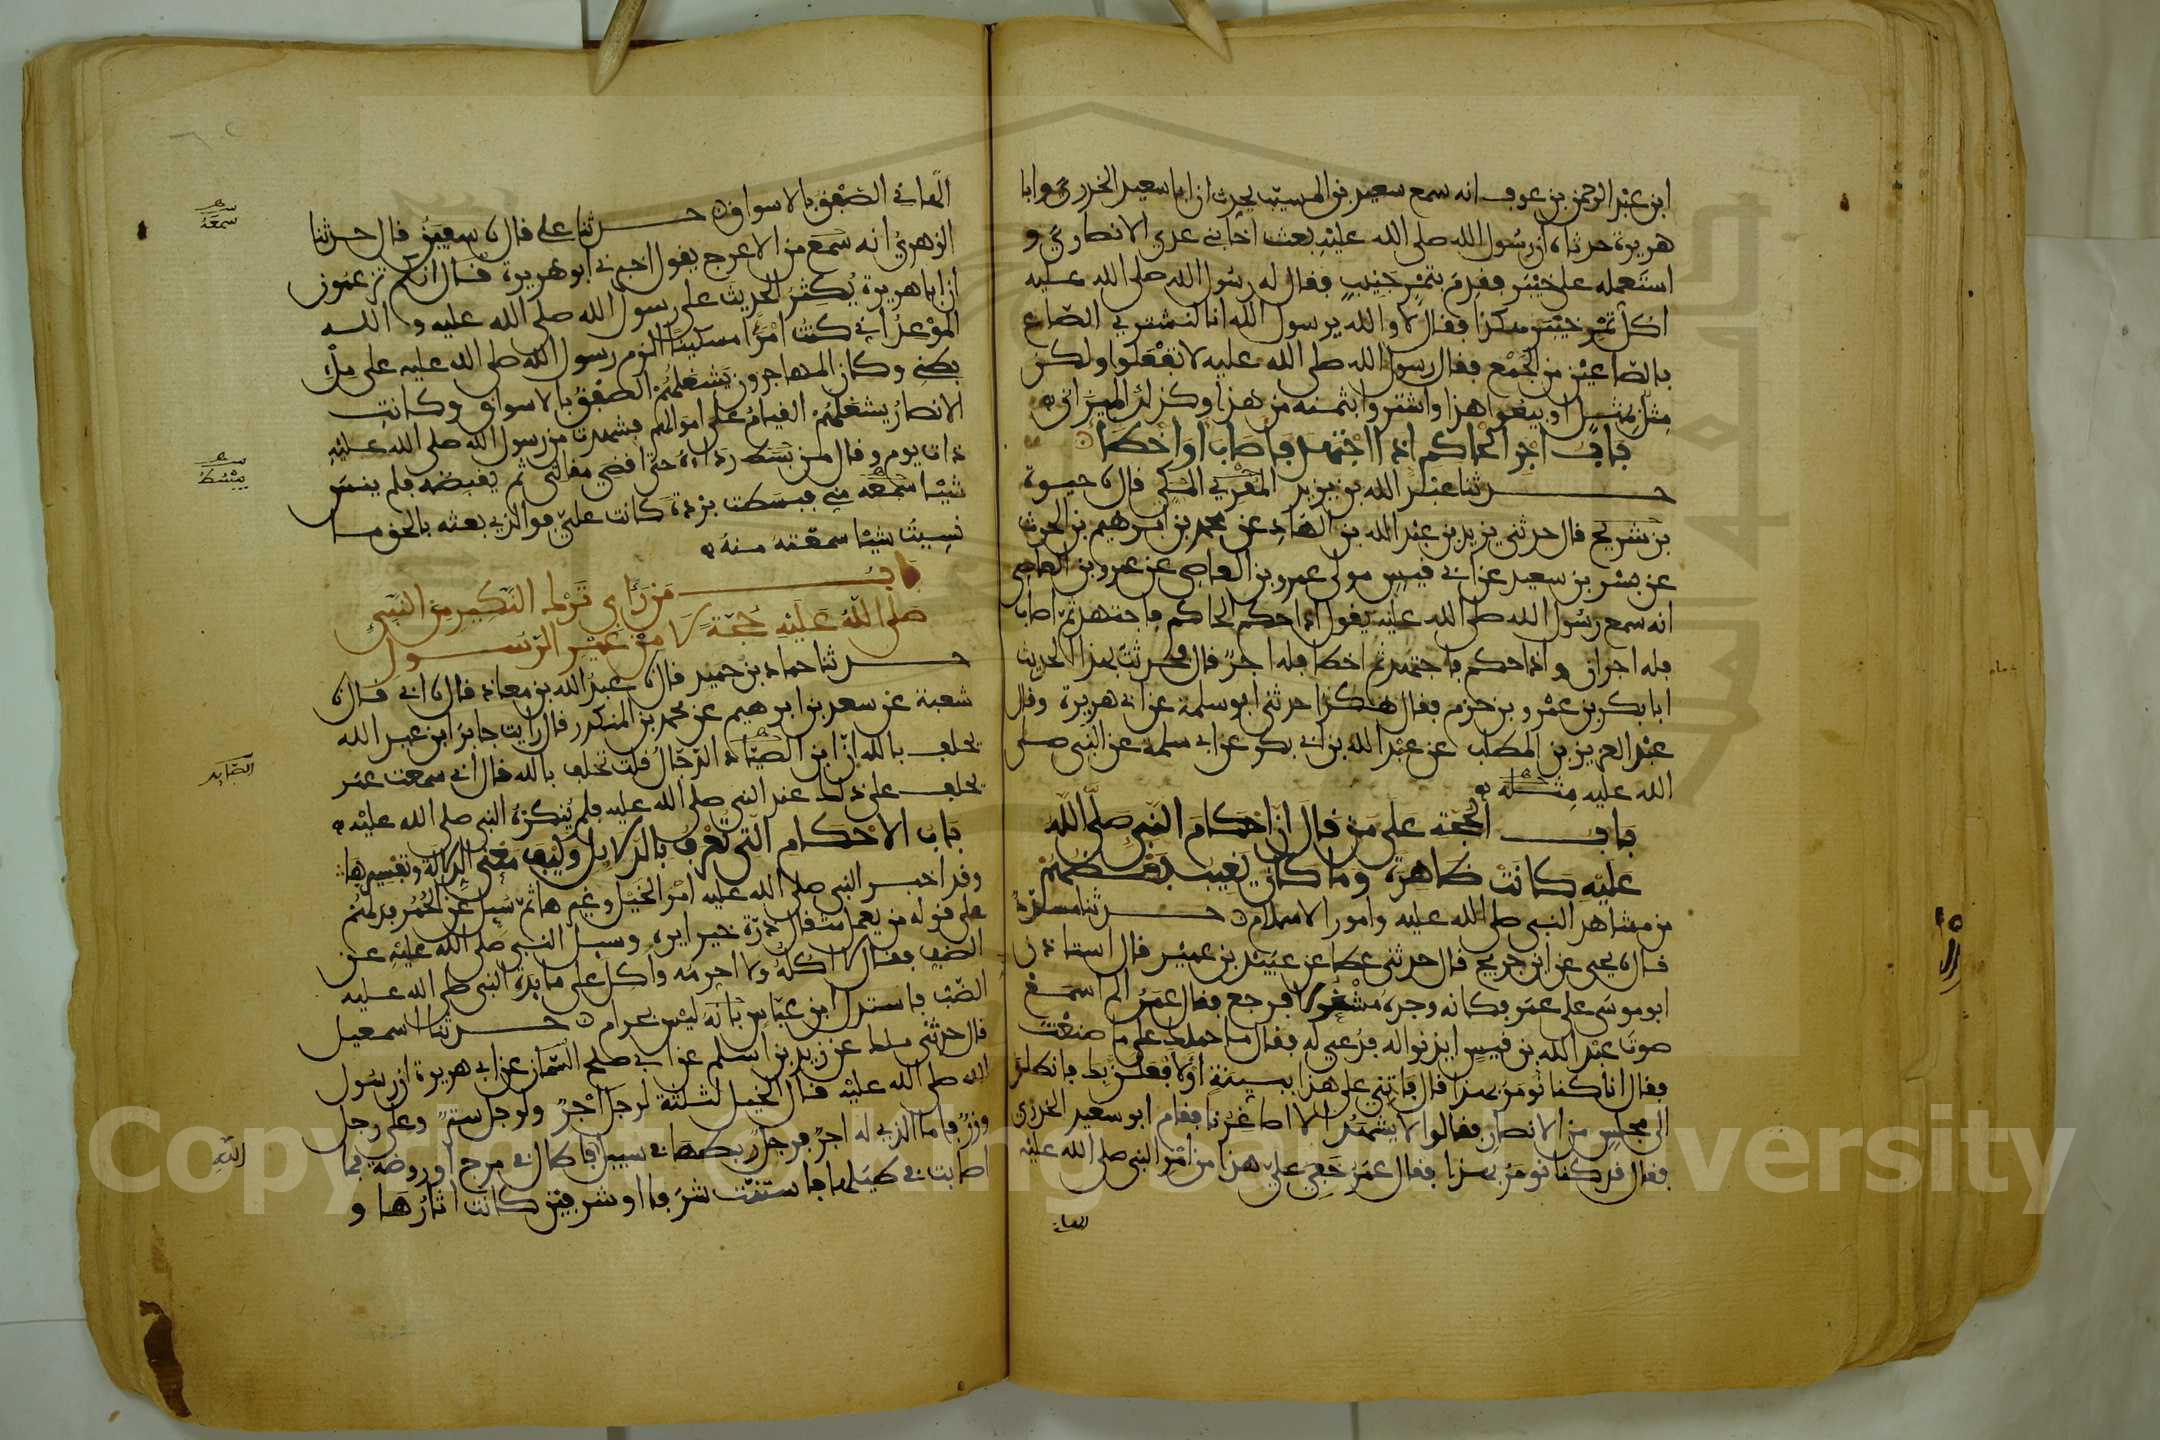 ابن عبد الرحمن بن عوف انه سمع سعيد بن المسيب يحدث ان ابا سعيد الخدري وابا
هريرة حدثاه ان رسول الله صلى الله عليه بعث اخا بني عدي الانصاري و
استعمله على خيبر فقدم بتمر جنيب فقال له رسول الله صلى الله عليه
اكل تمر خيبر هكذا فقال لا والله يرسول الله انا لنشتري الصاع
بالصاعين من الجمع فقال رسول الله صلى الله عليه لا تفعلوا ولكن
مثلا بمثل او بيعوا هذا واشتروا بثمنه من هذا وكذلك الميزان
باب اجر الحاكم اذا اجتهد فاصاب او اخطا
حدثنا عبد الله بن يزيد المقري المكي قال نا حيوة
بن شريح قال حدثني يزيد بن عبد الله بن الهاد عن محمد بن ابرهيم بن الحرث
عن بسر بن سعيد عن ابي قيس مولى عمرو بن العاصي عن عمرو بن العاصي
انه سمع رسول الله صلى الله عليه يقول اذا حكم الحاكم فاجتهد ثم اصاب
فله اجران واذا حكم فاجتهد ثم اخطا فله اجر قال فحدثت بهذا الحديث
ابا بكر بن عمرو بن حزم فقال هكذا حدثني ابو سلمة عن ابي هريرة وقال
عبد العزيز بن المطلب عن عبد الله بن ابي بكر عن ابي سلمة عن النبي صلى
الله عليه مثله
باب الحجة على من قال ان احكام النبي صلى الله
عليه كانت ظاهرة وما كان يغيب بعضهم
من مشاهد النبي صلى الله عليه وامور الاسلام حدثنا مسدد
قال نا يحيى عن ابن جريج قال حدثني عطا عن عبيد بن عمير قال استاذن
ابو موسى على عمر فكانه وجده مشغولا فرجع فقال عمر الم اسمع
صوت عبد الله بن قيس ايذنوا له فدعي له فقال ما حملك على ما صنعت
فقال انا كنا نومر بهذا قال فاتني على هذا ببينة او لافعلن بك فانطلق
الى مجلس من الانصار فقالوا لا يشهد الا اصاغرنا فقام ابو سعيد الخدري
فقال قد كنا نومر بهذا فقال عمر خفي علي هذا من امر النبي صلى الله عليه
الهاني الصفق بالاسواق حدثنا علي قال نا سفين قال حدثنا
الزهري انه سمع من الاعرج يقول اخبرني ابو هريرة قال انكم تزعمون
ان ابا هريرة يكثر الحديث على رسول الله صلى الله عليه و الله
الموعد اني كنت امرا مسكينا الزم رسول الله صلى الله عليه على مل
بطني وكان المهاجرون يشغلهم الصفق بالاسواق وكانت
الانصار يشغلهم القيام على اموالهم فشهدت من رسول الله صلى الله عليه
ذات يوم وقال من بسط رداءه حتى اقضي مقالتي ثم يقبضه فلم ينس
شيا سمعه مني فبسطت بردة كانت علي فوالذي بعثه بالحق ما
نسيت شيا سمعته منه
باب من راى ترك النكير من النبي
صلى الله عليه حجة لا من غير الرسول
حدثنا حماد بن حميد قال نا عبيد الله بن معاذ قال نا ابي قال نا
شعبة عن سعد بن ابرهيم عن محمد بن المنكدر قال رايت جابر ابن عبد الله
يحلف بالله ان ابن الصياد الدجال قلت تحلف بالله قال اني سمعت عمر
يحلف على ذلك عند النبي صلى الله عليه فلم ينكره النبي صلى الله عليه
باب الاحكام التي تعرف بالدلايل وكيف معنى الدلالة وتفسيرها
وقد اخبر النبي صلى الله عليه امر الخيل وغيرها ثم سيل عن الحمر فدلهم
على قوله من يعمل مثقال ذرة خيرا يره وسيل النبي صلى الله عليه عن
الضب فقال لا اكله ولا احرمه واكل على مايدة النبي صلى الله عليه
الضب فاستدل ابن عباس بانه ليس بحرام حدثنا اسمعيل
قال حدثني ملك عن زيد بن اسلم عن ابي صلح السمان عن ابي هريرة ان رسول
الله صلى الله عليه قال الخيل لثلثة لرجل اجر ولرجل ستر وعلى رجل
وزر فاما الذي له اجر فرجل ربطها في سبيل فاطال في مرج او روضة فما
اصابت في طيلها فاستنت شرفا او شرفين كانت اثارها و
سمعه
يبسط
الصايد
الله
Copyright © King Saud University